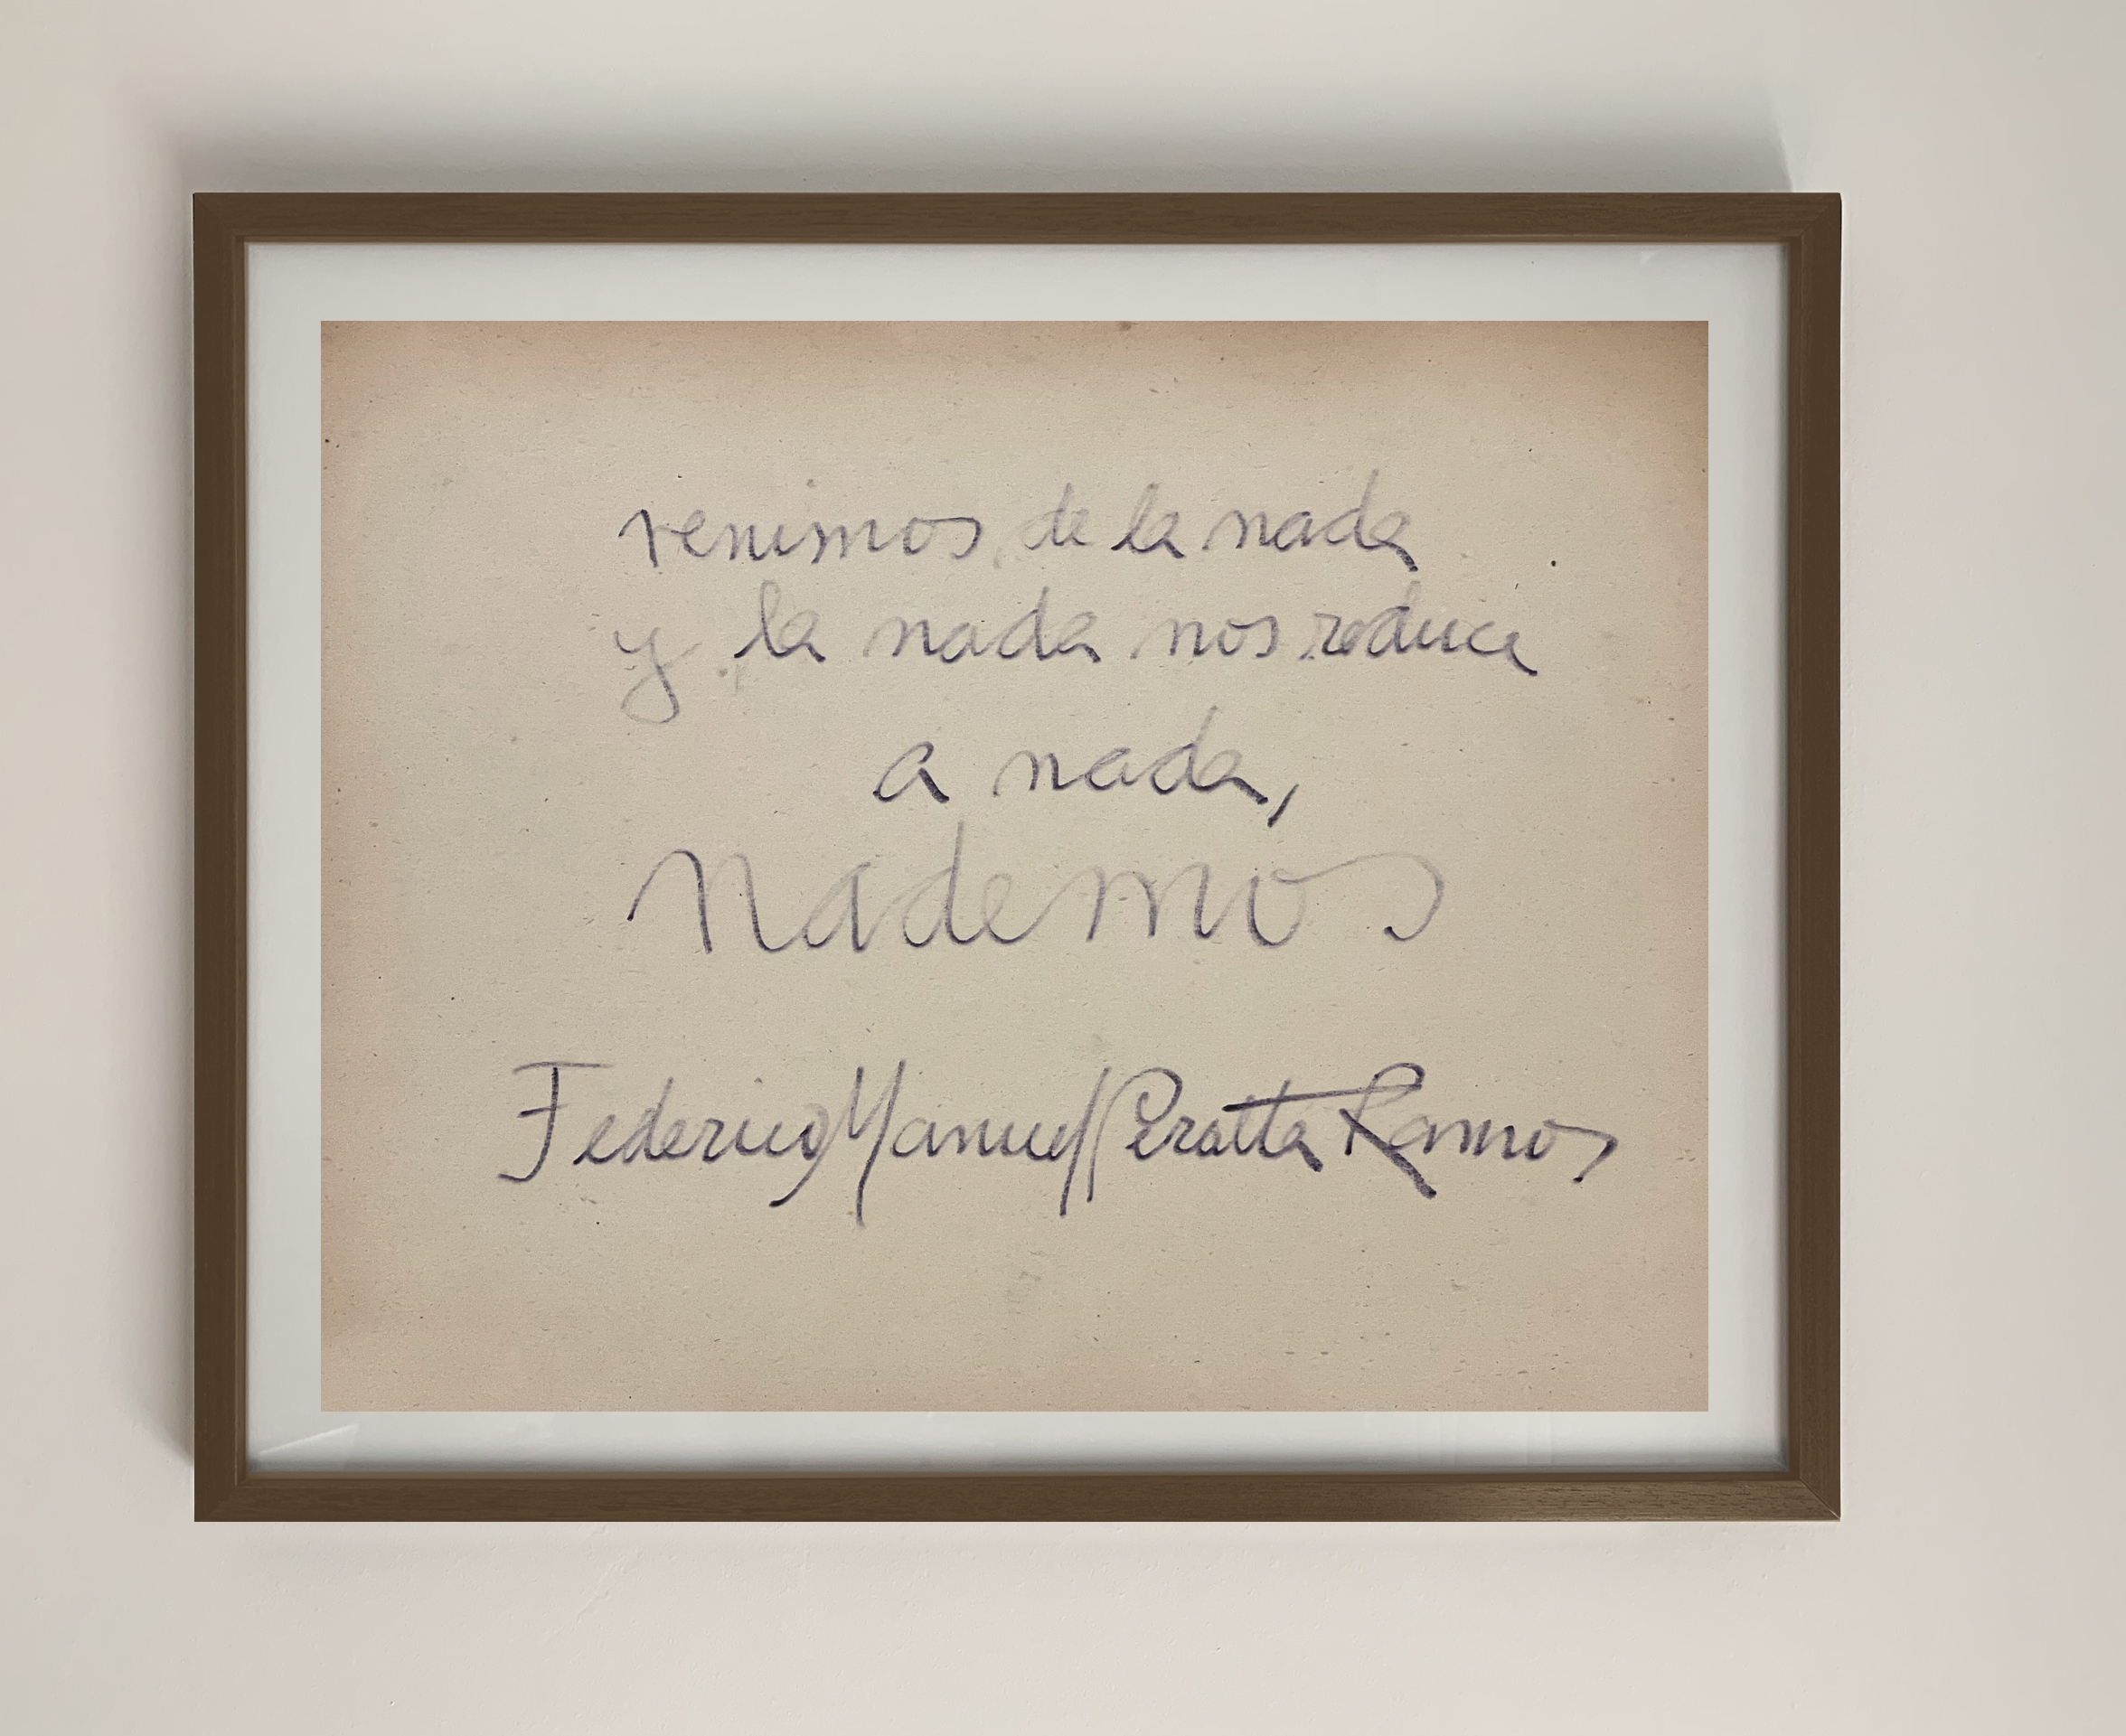 venimos de la nada
y la nada nos reduce
a nada,
nademos
Federico Manuel Peralta Ramos